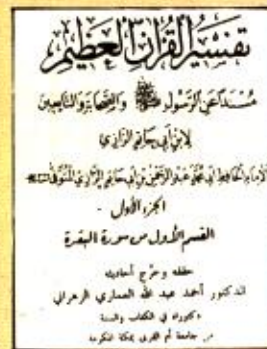 تفسير القرآن العظيم
مسندا عن الرسول ﷺ والصحابة والتابعين
لابن أبي حاتم الرازي
الإمام الحافظ أبي محمد عبد الرحمن بن أبي حاتم الرازي المتوفى
الجزء الأول -
القسم الأول من سورة البقرة
حققه وخرج أحاديثه
الدكتور أحمد عبد الله العماري الزهراني
دكتوراه في الكتاب والسنة
من جامعة أم القرى بمكة المكرمة